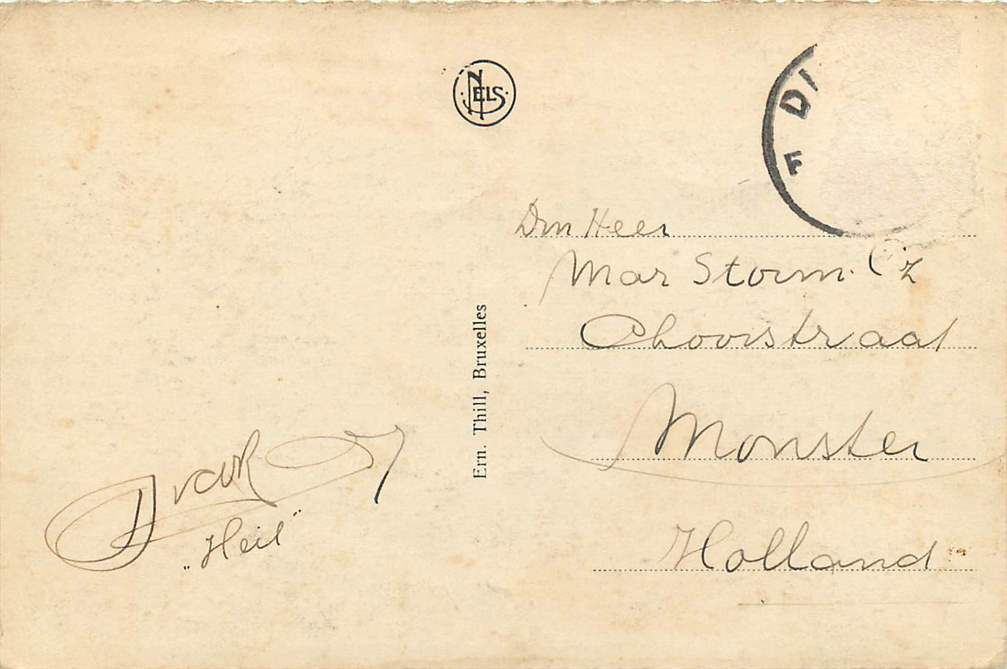 NELS
D
F
Den Heer
Mar Storm. Cz
Choorstraat
Monster
Holland
Ern. Thill, Bruxelles
„Heil"